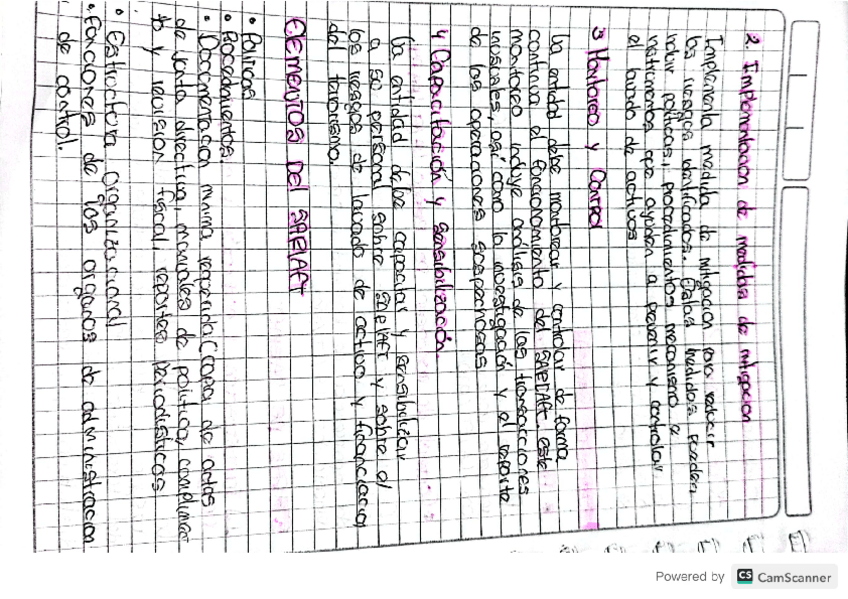 2. Implementacion de medidas de mitigacion
Implementa medida de mitigación para reducir
los riesgos identificados. Estas medidas pueden
incluir politicas, procedimientos mecanismo e
instrumentos que ayuden a prevenir y controlar
el lavado de activos
3 Monitoreo y Control
La entidad debe monitorear y controlar de forma
continua el funcionamiento del SARLAFT. este
monitoreo incluye análisis de las transacciones
inusuales, así como la investigación y el reporte
de las operaciones sospechosas
4 Capacitación y sensibilización
La entidad debe capacitar y sensibilizar
a su personal sobre SARLAFT y sobre el
los riesgos de lavado de activo y financiacion
del terrorismo.
Elementos Del SARLAFT
• Políticas
• Procedimientos
• Documentacion minima requerida (copia de actas
de junta directiva, manuales de politica, complimien
to y revision fiscal, reportes periodisticas
• Estructura organizacional
• Funciones de los organos de administracion
de control.
Powered by CS CamScanner